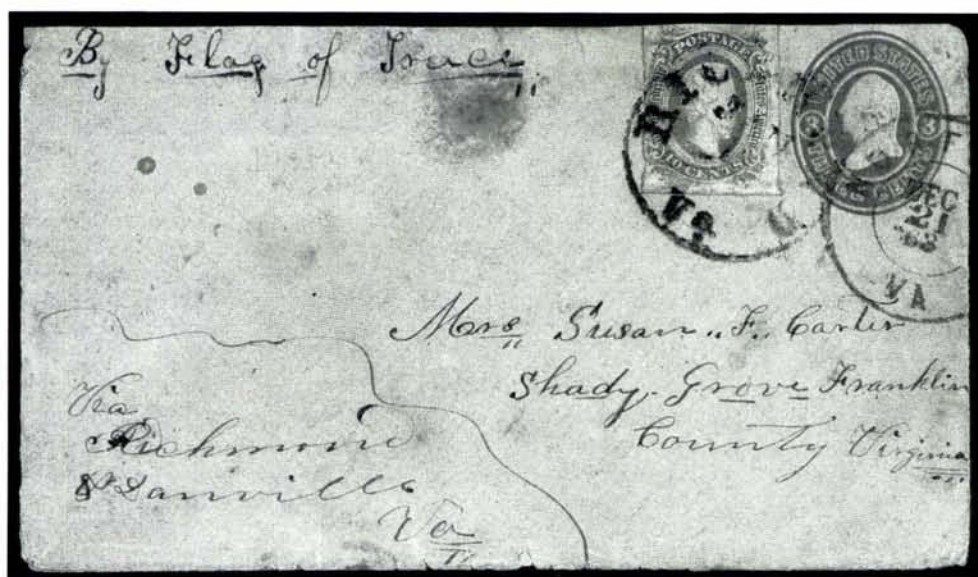 By Flag of Truce
POSTAGE
10 CENTS
UNITED STATES
3 3
RIC
Va
DEC
VA
Mrs Susan "F" Carter
Shady Grove Franklin
County Virginia
Via
Richmond
& Danville
Va